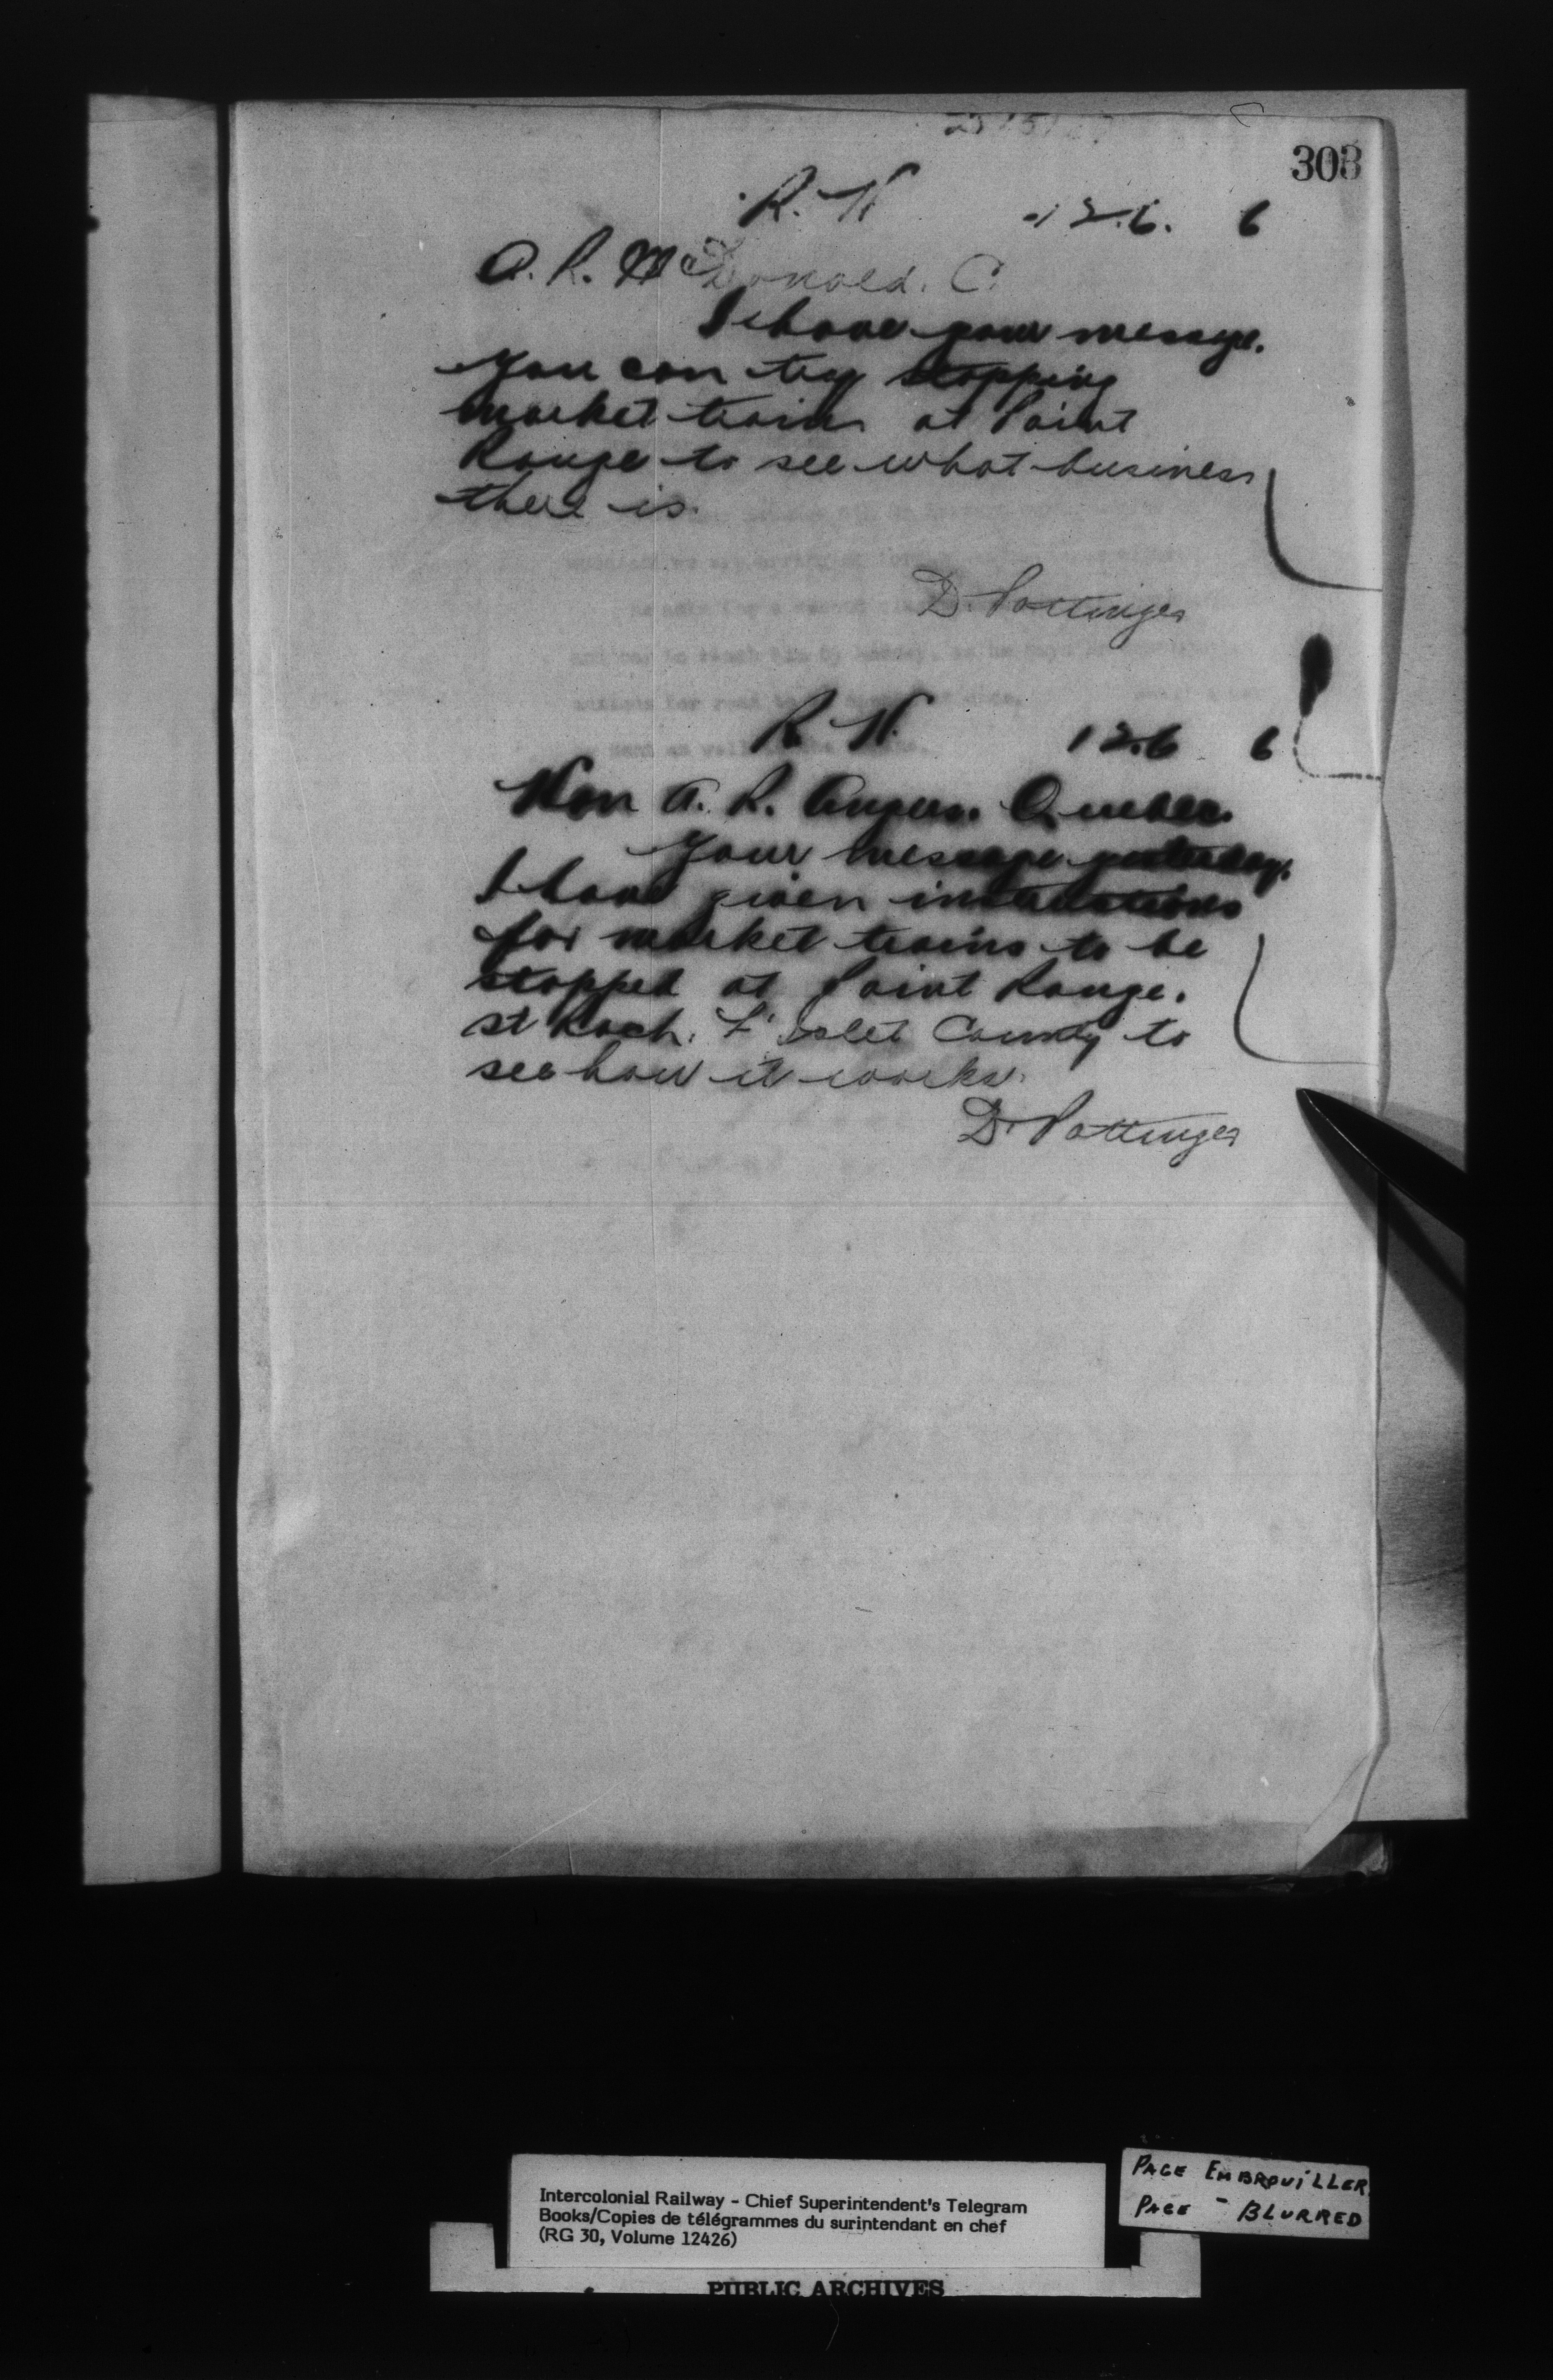 303
R. H 12.6. 6
A. R. McDonald. C.
I have your message.
You can try stopping
market trains at Point
Rouge to see what business
there is.
D. Pottinger
R H. 12.6 6
Hon A. R. Angers. Quebec.
Your message yesterday.
I have given instructions
for market trains to be
stopped at Point Rouge.
St Roch. L'Islet County to
see how it works.
D. Pottinger
PAGE EMBROUILLER
PAGE - BLURRED
Intercolonial Railway - Chief Superintendent's Telegram
Books/Copies de télégrammes du surintendant en chef
(RG 30, Volume 12426)
PUBLIC ARCHIVES